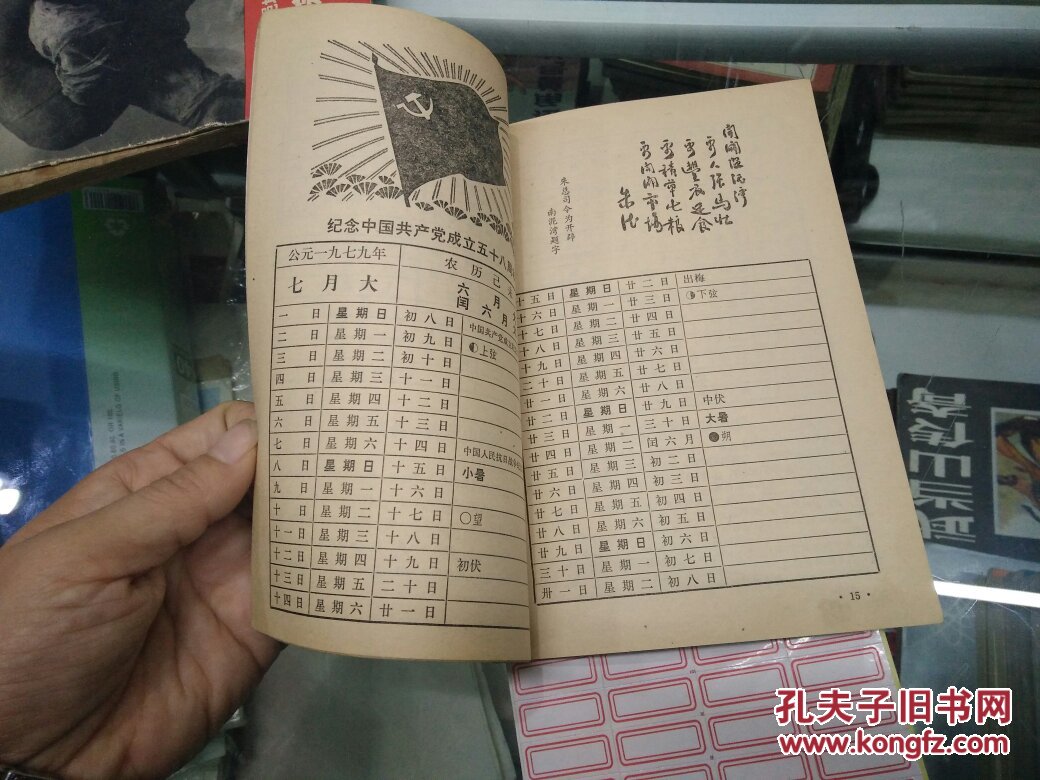 纪念中国共产党成立五十八周
公元一九七九年
农历己未
七月大
六月大
闰六月
一日 星期日 初八日 中国共产党成立
二日 星期一 初九日
三日 星期二 初十日 上弦
四日 星期三 十一日
五日 星期四 十二日
六日 星期五 十三日
七日 星期六 十四日 中国人民抗日战争
八日 星期日 十五日 小暑
九日 星期一 十六日
十日 星期二 十七日 望
十一日 星期三 十八日
十二日 星期四 十九日 初伏
十三日 星期五 二十日
十四日 星期六 廿一日
朱总司令为开辟
南泥湾题字
十五日 星期日 廿二日 出梅
十六日 星期一 廿三日 下弦
十七日 星期二 廿四日
十八日 星期三 廿五日
十九日 星期四 廿六日
二十日 星期五 廿七日
廿一日 星期六 廿八日
廿二日 星期日 廿九日 中伏
廿三日 星期一 三十日 大暑
廿四日 星期二 闰六月 朔
廿五日 星期三 初二日
廿六日 星期四 初三日
廿七日 星期五 初四日
廿八日 星期六 初五日
廿九日 星期日 初六日
三十日 星期一 初七日
卅一日 星期二 初八日
·15·
孔夫子旧书网
www.kongfz.com